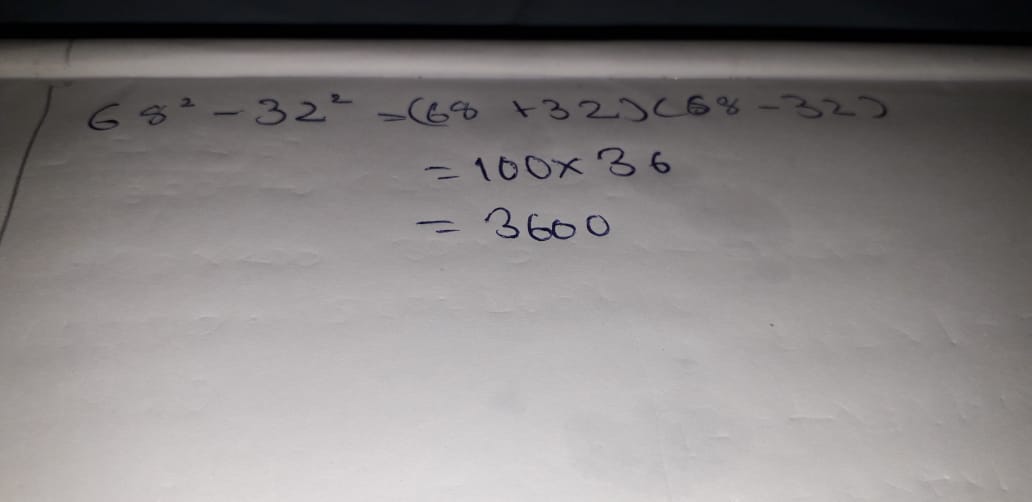 68² - 32² = (68 + 32)(68 - 32)
= 100 × 36
= 3600